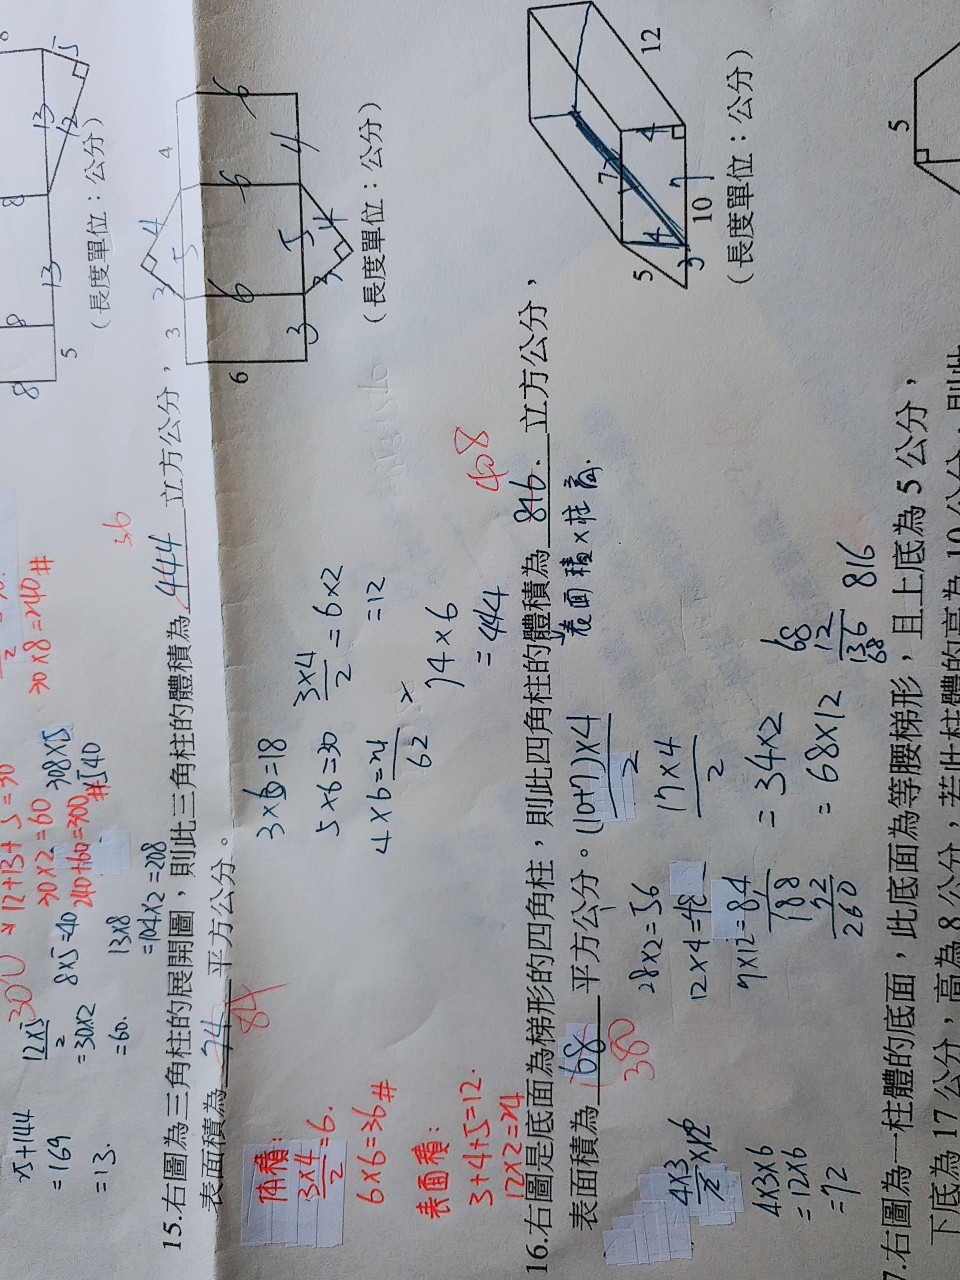 8
13
5
12
8
13
8
8
5
(長度單位：公分)
300
12+13+5=30
30×2=60
240+60=300
30×8=240#
12×5
2
=30×2
=60.
5+144
=169
=13.
8×5=40
13×8
=104×2=208
308×5
#540
36
15.右圖為三角柱的展開圖，則此三角柱的體積為 444 立方公分，
表面積為 74 平方公分。
84
4
3
4
5
3
6
6
6
6
3
5
4
3
4
(長度單位：公分)
3×6=18
5×6=30
4×6=24
62
3×4
2
=6×2
=12
74×6
=444
體積：
3×4
2
=6.
6×6=36#
表面積：
3+4+5=12.
12×2=24
408
16.右圖是底面為梯形的四角柱，則此四角柱的體積為 816. 立方公分，
表面積×柱高.
表面積為 68 平方公分。
380
(10+7)×4
2
17×4
2
=34×2
=68×12
68
12
136
68
816
28×2=56
12×4=48
7×12=84
188
72
260
4×3
2
×12
4×3×6
=12×6
=72
12
7
4
4
5
3
7
10
(長度單位：公分)
5
7.右圖為一柱體的底面，此底面為等腰梯形，且上底為 5 公分，
下底為 17 公分，高為 8 公分，若此柱體的高為 10 公分，則此